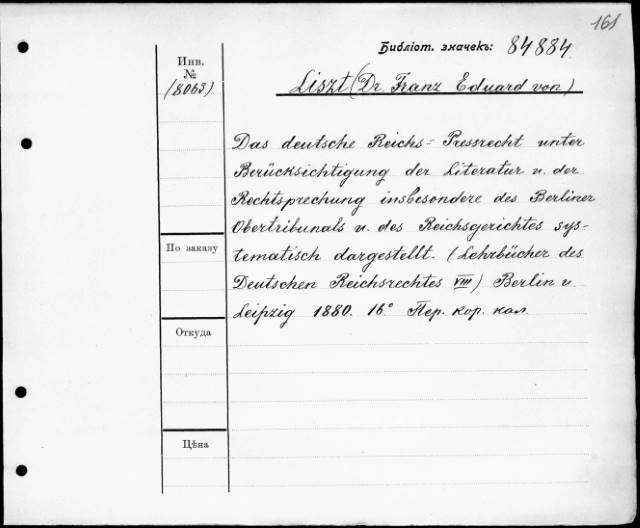 161
Библіот. значекъ: 84884.
Инв.
№
(8063)
Liszt (Dr. Franz Eduard von)
Das deutsche Reichs-Pressrecht unter
Berücksichtigung der Literatur u. der
Rechtsprechung insbesondere des Berliner
Obertribunals u. des Reichsgerichtes sys-
tematisch dargestellt. (Lehrbücher des
Deutschen Reichsrechtes VIII) Berlin u.
Leipzig 1880. 16° Пер. кор. кол.
По заказу
Откуда
Цѣна